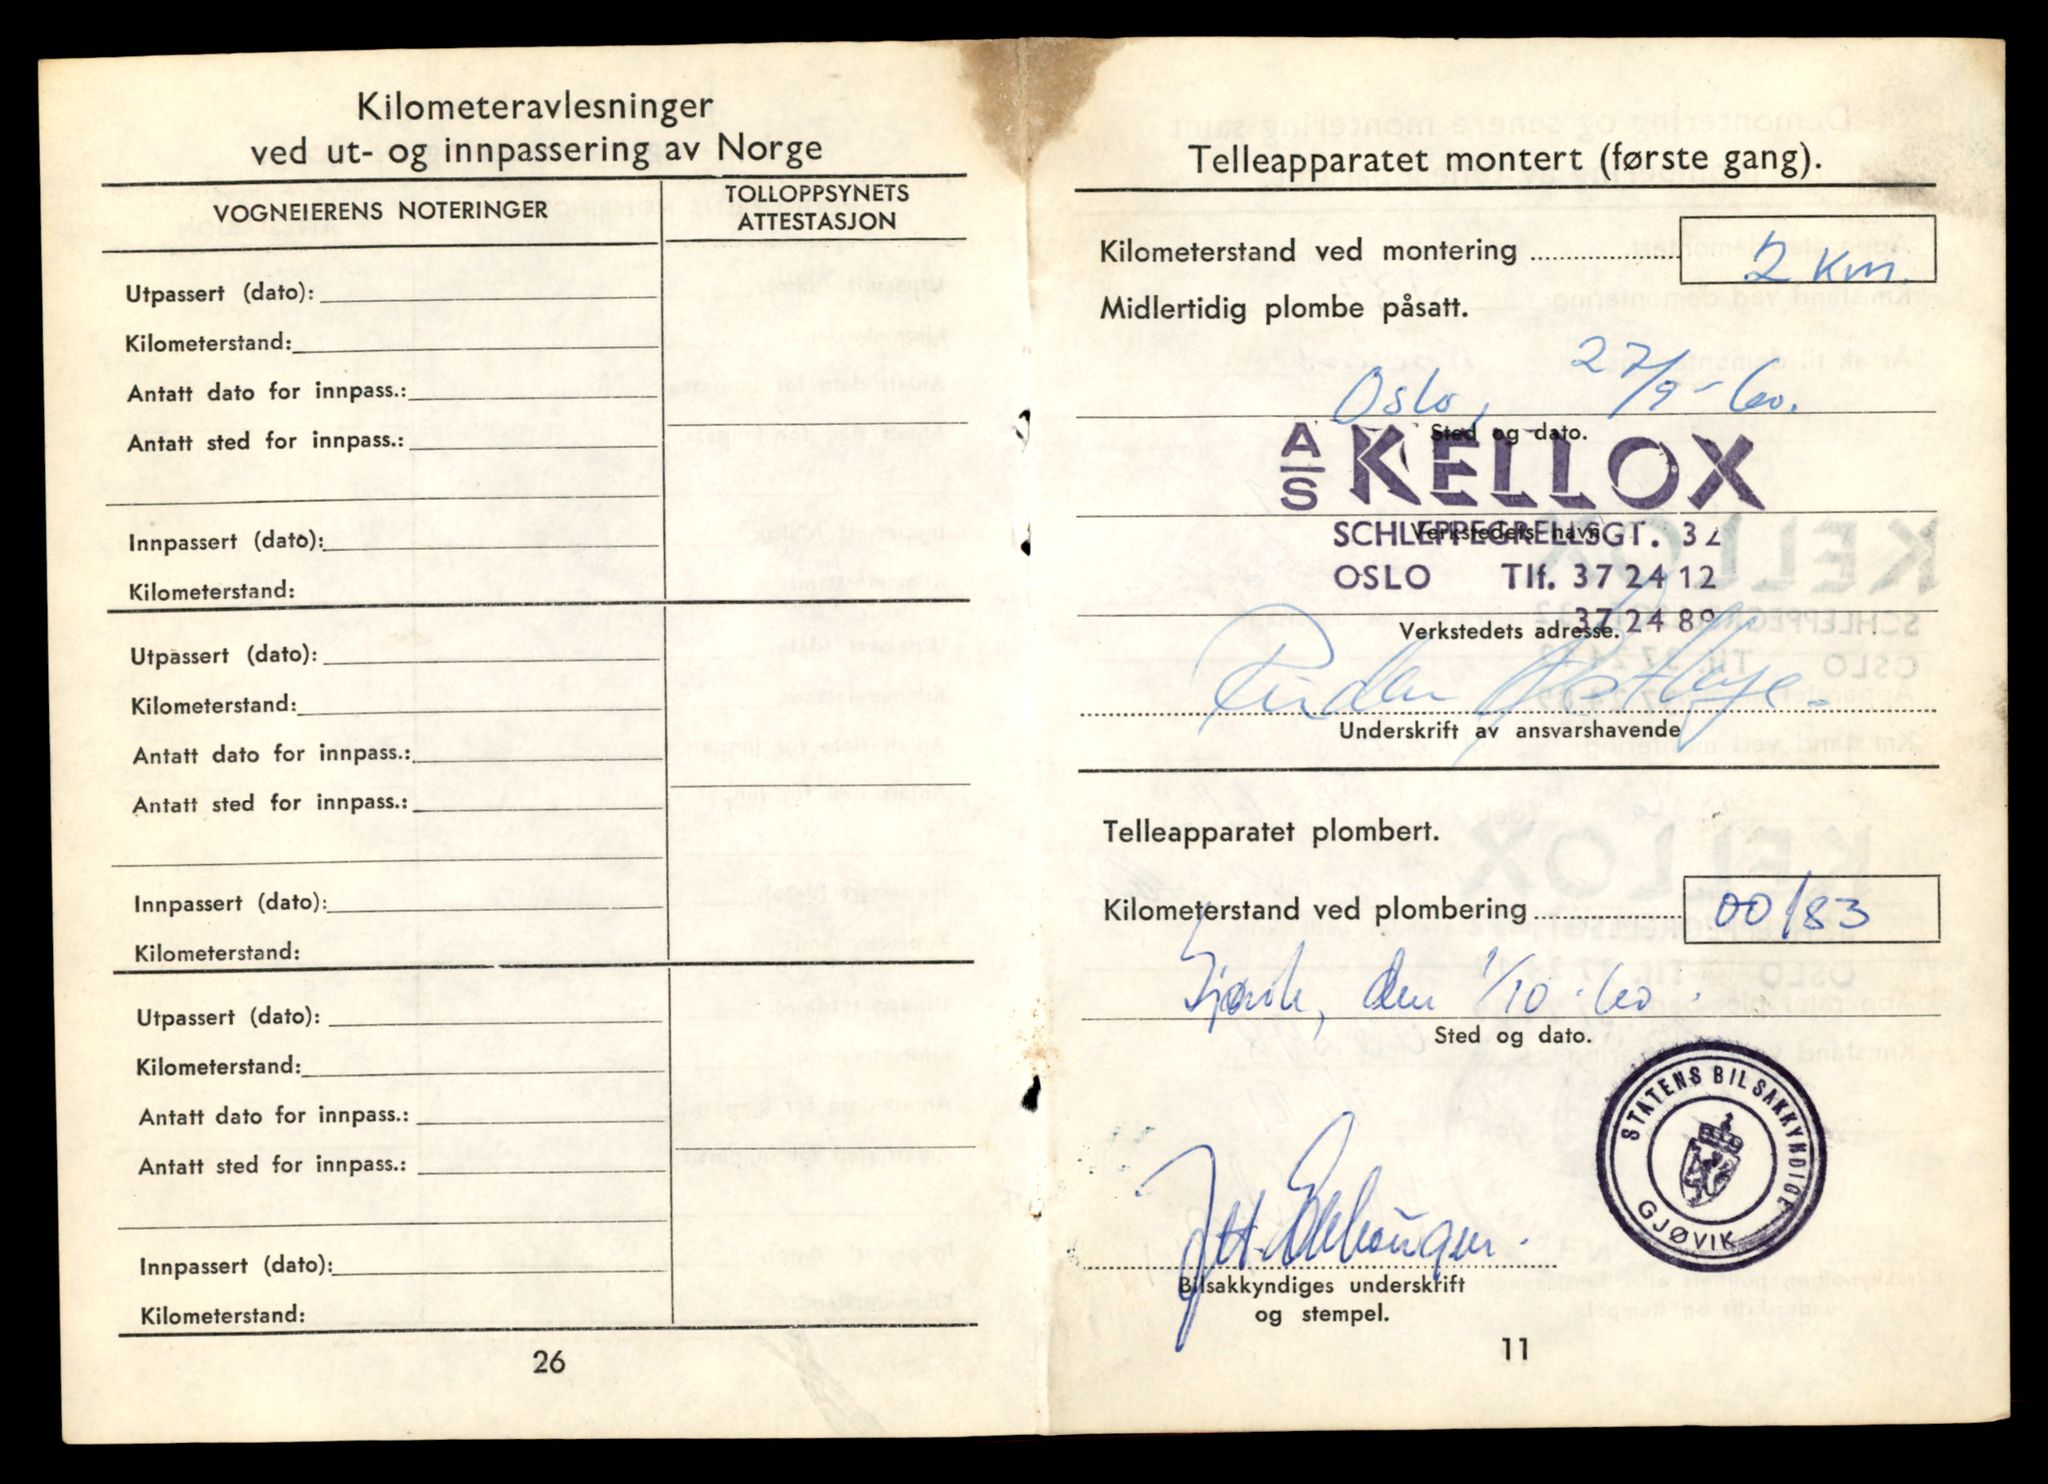 Kilometeravlesninger
ved ut- og innpassering av Norge
VOGNEIERENS NOTERINGER
TOLLOPPSYNETS
ATTESTASJON
Utpassert (dato):
Kilometerstand:
Antatt dato for innpass.:
Antatt sted for innpass.:
Innpassert (dato):
Kilometerstand:
Utpassert (dato):
Kilometerstand:
Antatt dato for innpass.:
Antatt sted for innpass.:
Innpassert (dato):
Kilometerstand:
Utpassert (dato):
Kilometerstand:
Antatt dato for innpass.:
Antatt sted for innpass.:
Innpassert (dato):
Kilometerstand:
26
Telleapparatet montert (første gang).
Kilometerstand ved montering 2 km.
Midlertidig plombe påsatt.
Oslo, 27/9-60.
Sted og dato.
A/S KELLOX
Verkstedets navn.
SCHLEPPEGRELLSGT. 32
OSLO Tlf. 37 24 12
37 24 89
Verkstedets adresse.
Underskrift av ansvarshavende
Telleapparatet plombert.
Kilometerstand ved plombering 00183
Gjøvik, den 1/10-60.
Sted og dato.
STATENS BILSAKKYNDIGE
GJØVIK
Bilsakkyndiges underskrift
og stempel.
11